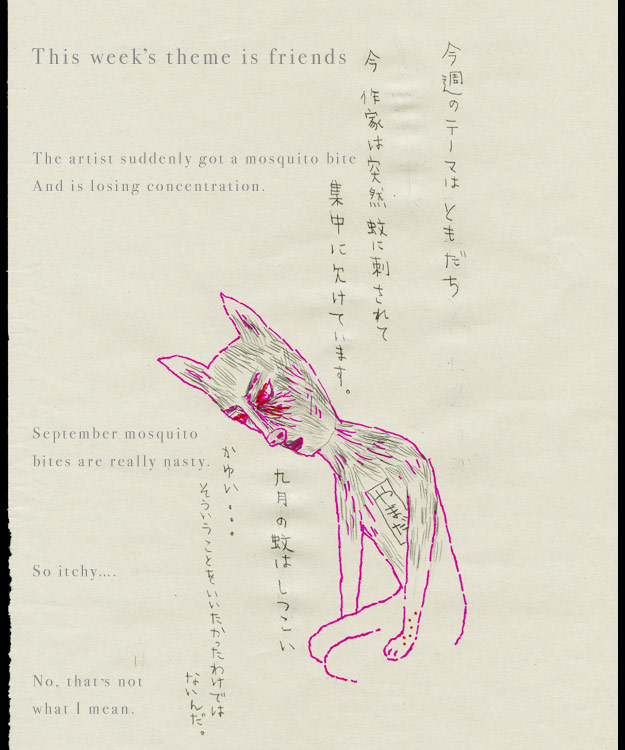 This week's theme is friends
The artist suddenly got a mosquito bite
And is losing concentration.
September mosquito
bites are really nasty.
So itchy....
No, that's not
what I mean.
今週のテーマはともだち
今 作家は突然 蚊に刺されて
集中に欠けています。
九月の蚊はしつこい
かゆい。。。
そういうことをいいたかったわけでは
ないんだ。